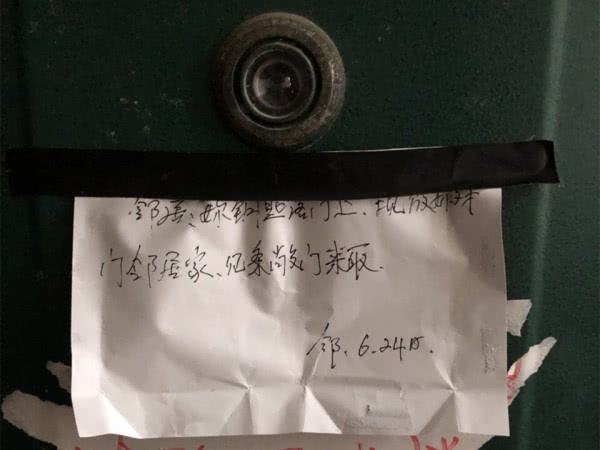 邻居:您钥匙落门上、现放在对
门邻居家、见条敲门来取.
邻. 6.24日.